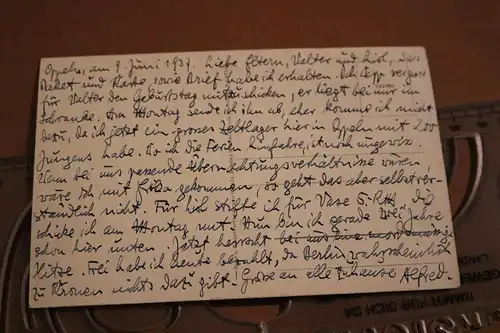 Oppeln, am 9. Juni 1937. Liebe Eltern, Walter und Lisl, das
Paket und Karte sowie Brief habe ich erhalten. Ich Depp vergass
für Walter den Geburtstag mitzuschicken, er liegt bei mir im
Schranke. Am Montag sende ich ihn ab, eher komme ich nicht
dazu, da ich jetzt ein grosses Zeltlager hier in Oppeln mit 200
Jungens habe. Wo ich die Ferien hinfahre, ist noch ungewiss.
Wenn bei uns passende Übernachtungsverhältnisse wären,
wäre ich mit gekommen, so geht das aber selbstver-
ständlich nicht. Für ich für Vase 5.- RM, die
schicke ich am Montag mit. Nun bin ich gerade zwei Jahre
schon hier unten. Jetzt herrscht bei uns eine
Hitze. Frei habe ich heute bezahlt, da Berlin wahrscheinlich
zu Kronen nichts dazu gibt. Grüsse an alle zuhause Alfred.